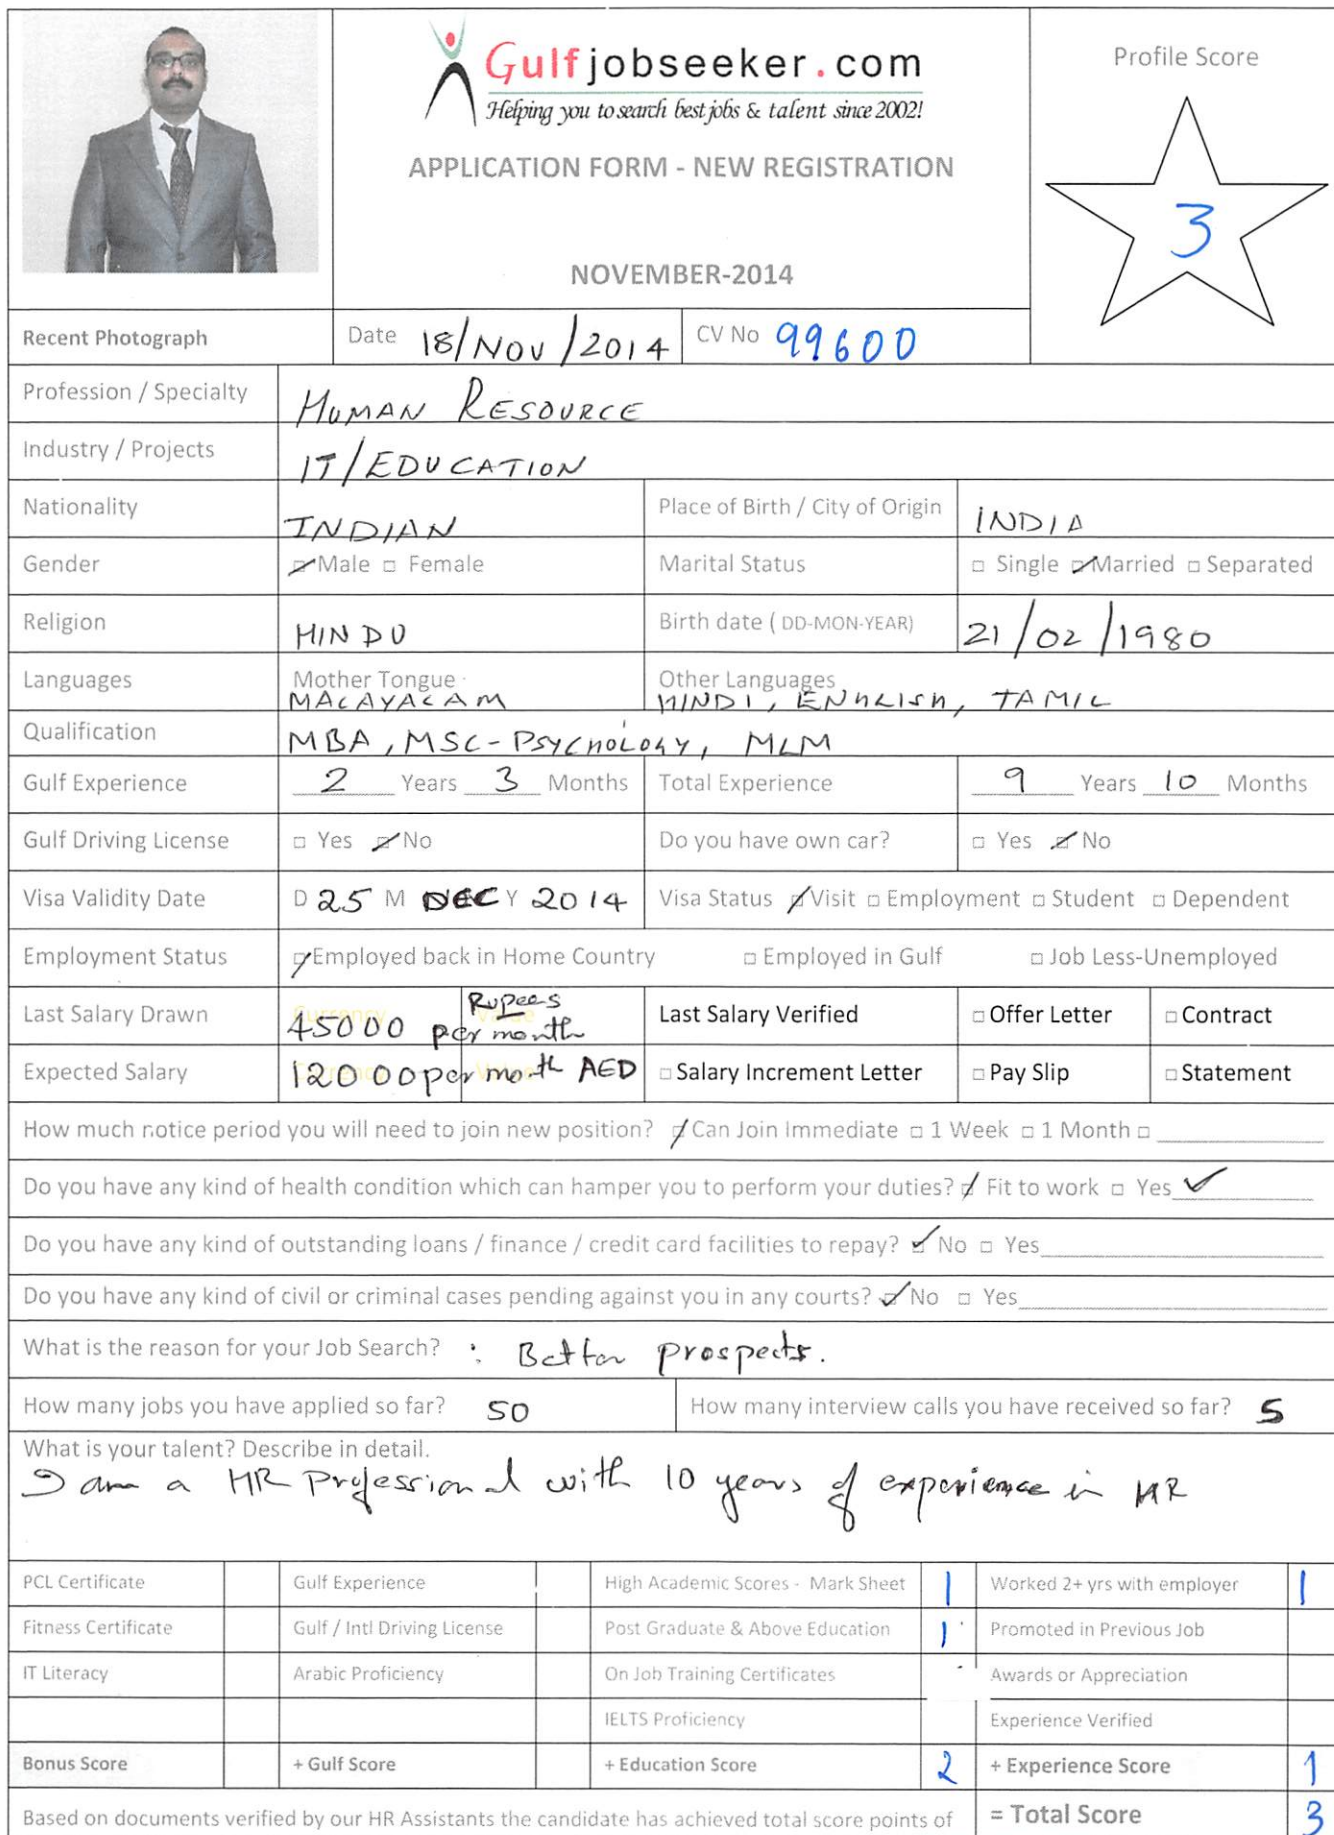 Gulfjobseeker.com
Helping you to search best jobs & talent since 2002!
APPLICATION FORM - NEW REGISTRATION
NOVEMBER-2014
Profile Score
3
Recent Photograph
Date 18/NOV/2014 CV No 99600
Profession / Specialty HUMAN RESOURCE
Industry / Projects IT/EDUCATION
Nationality INDIAN Place of Birth / City of Origin INDIA
Gender Male Female Marital Status Single Married Separated
Religion HINDU Birth date ( DD-MON-YEAR) 21/02/1980
Languages Mother Tongue Other Languages
MALAYALAM HINDI, ENGLISH, TAMIL
Qualification MBA, MSC-PSYCHOLOGY, MLM
Gulf Experience 2 Years 3 Months Total Experience 9 Years 10 Months
Gulf Driving License Yes No Do you have own car? Yes No
Visa Validity Date D 25 M DEC Y 2014 Visa Status Visit Employment Student Dependent
Employment Status Employed back in Home Country Employed in Gulf Job Less-Unemployed
Last Salary Drawn Currency Value 45000 Rupees per month Last Salary Verified Offer Letter Contract
Expected Salary Currency Value 12000 per month AED Salary Increment Letter Pay Slip Statement
How much notice period you will need to join new position? Can Join Immediate 1 Week 1 Month
Do you have any kind of health condition which can hamper you to perform your duties? Fit to work Yes ✓
Do you have any kind of outstanding loans / finance / credit card facilities to repay? No Yes
Do you have any kind of civil or criminal cases pending against you in any courts? No Yes
What is the reason for your Job Search? : Better prospects.
How many jobs you have applied so far? 50 How many interview calls you have received so far? 5
What is your talent? Describe in detail.
I am a HR Professional with 10 years of experience in HR
PCL Certificate Gulf Experience High Academic Scores - Mark Sheet 1 Worked 2+ yrs with employer 1
Fitness Certificate Gulf / Intl Driving License Post Graduate & Above Education 1 Promoted in Previous Job
IT Literacy Arabic Proficiency On Job Training Certificates Awards or Appreciation
IELTS Proficiency Experience Verified
Bonus Score + Gulf Score + Education Score 2 + Experience Score 1
Based on documents verified by our HR Assistants the candidate has achieved total score points of = Total Score 3